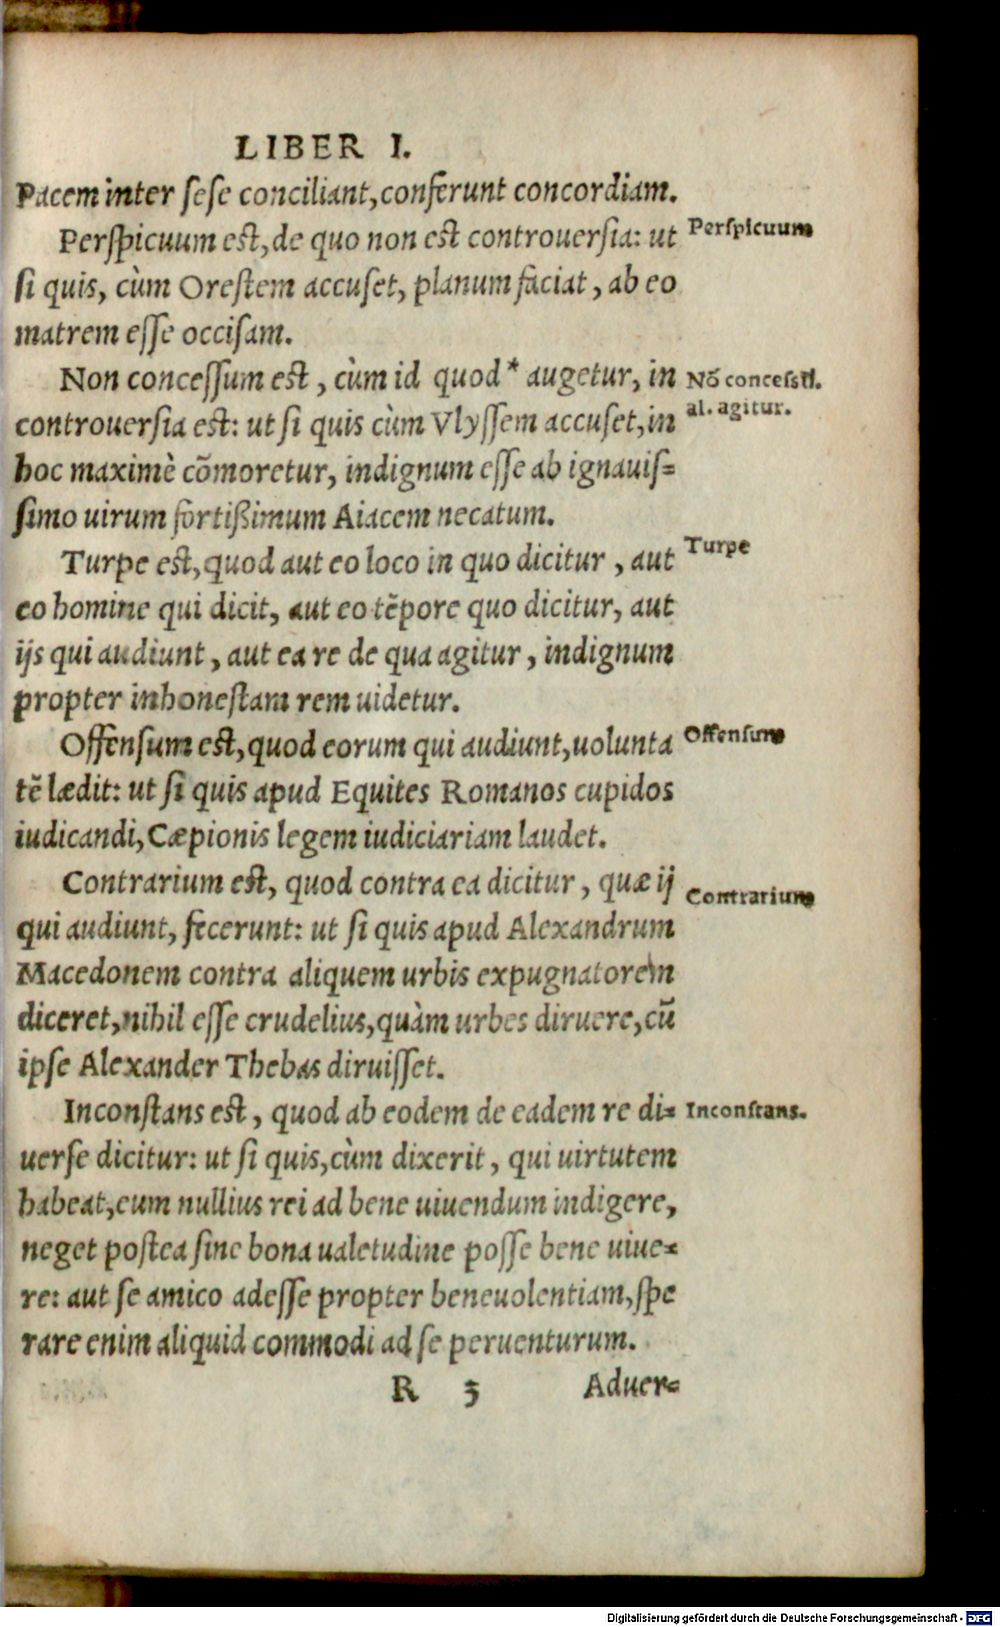 LIBER I.
Pacem inter sese conciliant, conferunt concordiam.
Perspicuum est, de quo non est controuersia: ut
Perspicuum
si quis, cùm Orestem accuset, planum faciat, ab eo
matrem esse occisam.
Non concessum est, cùm id quod * augetur, in
Nō concessū.
controuersia est: ut si quis cùm Vlyssem accuset, in
al. agitur.
hoc maximè cōmoretur, indignum esse ab ignauis=
simo uirum fortißimum Aiacem necatum.
Turpe est, quod aut eo loco in quo dicitur, aut
Turpe
eo homine qui dicit, aut eo tēpore quo dicitur, aut
ijs qui audiunt, aut ea re de qua agitur, indignum
propter inhonestam rem uidetur.
Offensum est, quod eorum qui audiunt, uolunta
Offensum
tē lædit: ut si quis apud Equites Romanos cupidos
iudicandi, Cæpionis legem iudiciariam laudet.
Contrarium est, quod contra ea dicitur, quæ ij
Contrarium
qui audiunt, fecerunt: ut si quis apud Alexandrum
Macedonem contra aliquem urbis expugnatorem
diceret, nihil esse crudelius, quàm urbes diruere, cū
ipse Alexander Thebas diruisset.
Inconstans est, quod ab eodem de eadem re di=
Inconstans.
uerse dicitur: ut si quis, cùm dixerit, qui uirtutem
habeat, eum nullius rei ad bene uiuendum indigere,
neget postea sine bona ualetudine posse bene uiue=
re: aut se amico adesse propter beneuolentiam, spe
rare enim aliquid commodi ad se peruenturum.
R 3 Aduer=
Digitalisierung gefördert durch die Deutsche Forschungsgemeinschaft - DFG